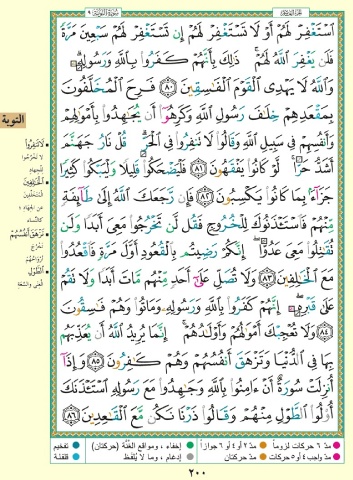 سورة التوبة ٩
الجزء العاشر
ٱسْتَغْفِرْ لَهُمْ أَوْ لَا تَسْتَغْفِرْ لَهُمْ إِن تَسْتَغْفِرْ لَهُمْ سَبْعِينَ مَرَّةً
فَلَن يَغْفِرَ ٱللَّهُ لَهُمْ ۚ ذَٰلِكَ بِأَنَّهُمْ كَفَرُوا۟ بِٱللَّهِ وَرَسُولِهِۦ ۗ
وَٱللَّهُ لَا يَهْدِى ٱلْقَوْمَ ٱلْفَـٰسِقِينَ ٨٠ فَرِحَ ٱلْمُخَلَّفُونَ
بِمَقْعَدِهِمْ خِلَـٰفَ رَسُولِ ٱللَّهِ وَكَرِهُوٓا۟ أَن يُجَـٰهِدُوا۟ بِأَمْوَٰلِهِمْ
وَأَنفُسِهِمْ فِى سَبِيلِ ٱللَّهِ وَقَالُوا۟ لَا تَنفِرُوا۟ فِى ٱلْحَرِّ ۗ قُلْ نَارُ جَهَنَّمَ
أَشَدُّ حَرًّا ۚ لَّوْ كَانُوا۟ يَفْقَهُونَ ٨١ فَلْيَضْحَكُوا۟ قَلِيلًا وَلْيَبْكُوا۟ كَثِيرًا
جَزَآءًۢ بِمَا كَانُوا۟ يَكْسِبُونَ ٨٢ فَإِن رَّجَعَكَ ٱللَّهُ إِلَىٰ طَآئِفَةٍ
مِّنْهُمْ فَٱسْتَـْٔذَنُوكَ لِلْخُرُوجِ فَقُل لَّن تَخْرُجُوا۟ مَعِىَ أَبَدًا وَلَن
تُقَـٰتِلُوا۟ مَعِىَ عَدُوًّا ۖ إِنَّكُمْ رَضِيتُم بِٱلْقُعُودِ أَوَّلَ مَرَّةٍ فَٱقْعُدُوا۟
مَعَ ٱلْخَـٰلِفِينَ ٨٣ وَلَا تُصَلِّ عَلَىٰٓ أَحَدٍ مِّنْهُم مَّاتَ أَبَدًا وَلَا تَقُمْ
عَلَىٰ قَبْرِهِۦٓ ۖ إِنَّهُمْ كَفَرُوا۟ بِٱللَّهِ وَرَسُولِهِۦ وَمَاتُوا۟ وَهُمْ فَـٰسِقُونَ
٨٤ وَلَا تُعْجِبْكَ أَمْوَٰلُهُمْ وَأَوْلَـٰدُهُمْ ۚ إِنَّمَا يُرِيدُ ٱللَّهُ أَن يُعَذِّبَهُم
بِهَا فِى ٱلدُّنْيَا وَتَزْهَقَ أَنفُسُهُمْ وَهُمْ كَـٰفِرُونَ ٨٥ وَإِذَآ
أُنزِلَتْ سُورَةٌ أَنْ ءَامِنُوا۟ بِٱللَّهِ وَجَـٰهِدُوا۟ مَعَ رَسُولِهِ ٱسْتَـْٔذَنَكَ
أُو۟لُوا۟ ٱلطَّوْلِ مِنْهُمْ وَقَالُوا۟ ذَرْنَا نَكُن مَّعَ ٱلْقَـٰعِدِينَ ٨٦
التوبة
لَا تَنفِرُوا
لا تخرجوا
للجهاد
ٱلْخَـٰلِفِينَ
المتخلفين
عن الجهاد
كالنساء
تَزْهَقَ أَنفُسُهُمْ
تخرج
أرواحهم
ٱلطَّوْلِ
الغنى والسعة
مد ٦ حركات لزوماً
مد ٢ أو ٤ أو ٦ جوازاً
إخفاء، ومواقع الغنة (حركتان)
تفخيم
مد واجب ٤ أو ٥ حركات
مد حركتان
إدغام، وما لا يلفظ
قلقلة
٢٠٠